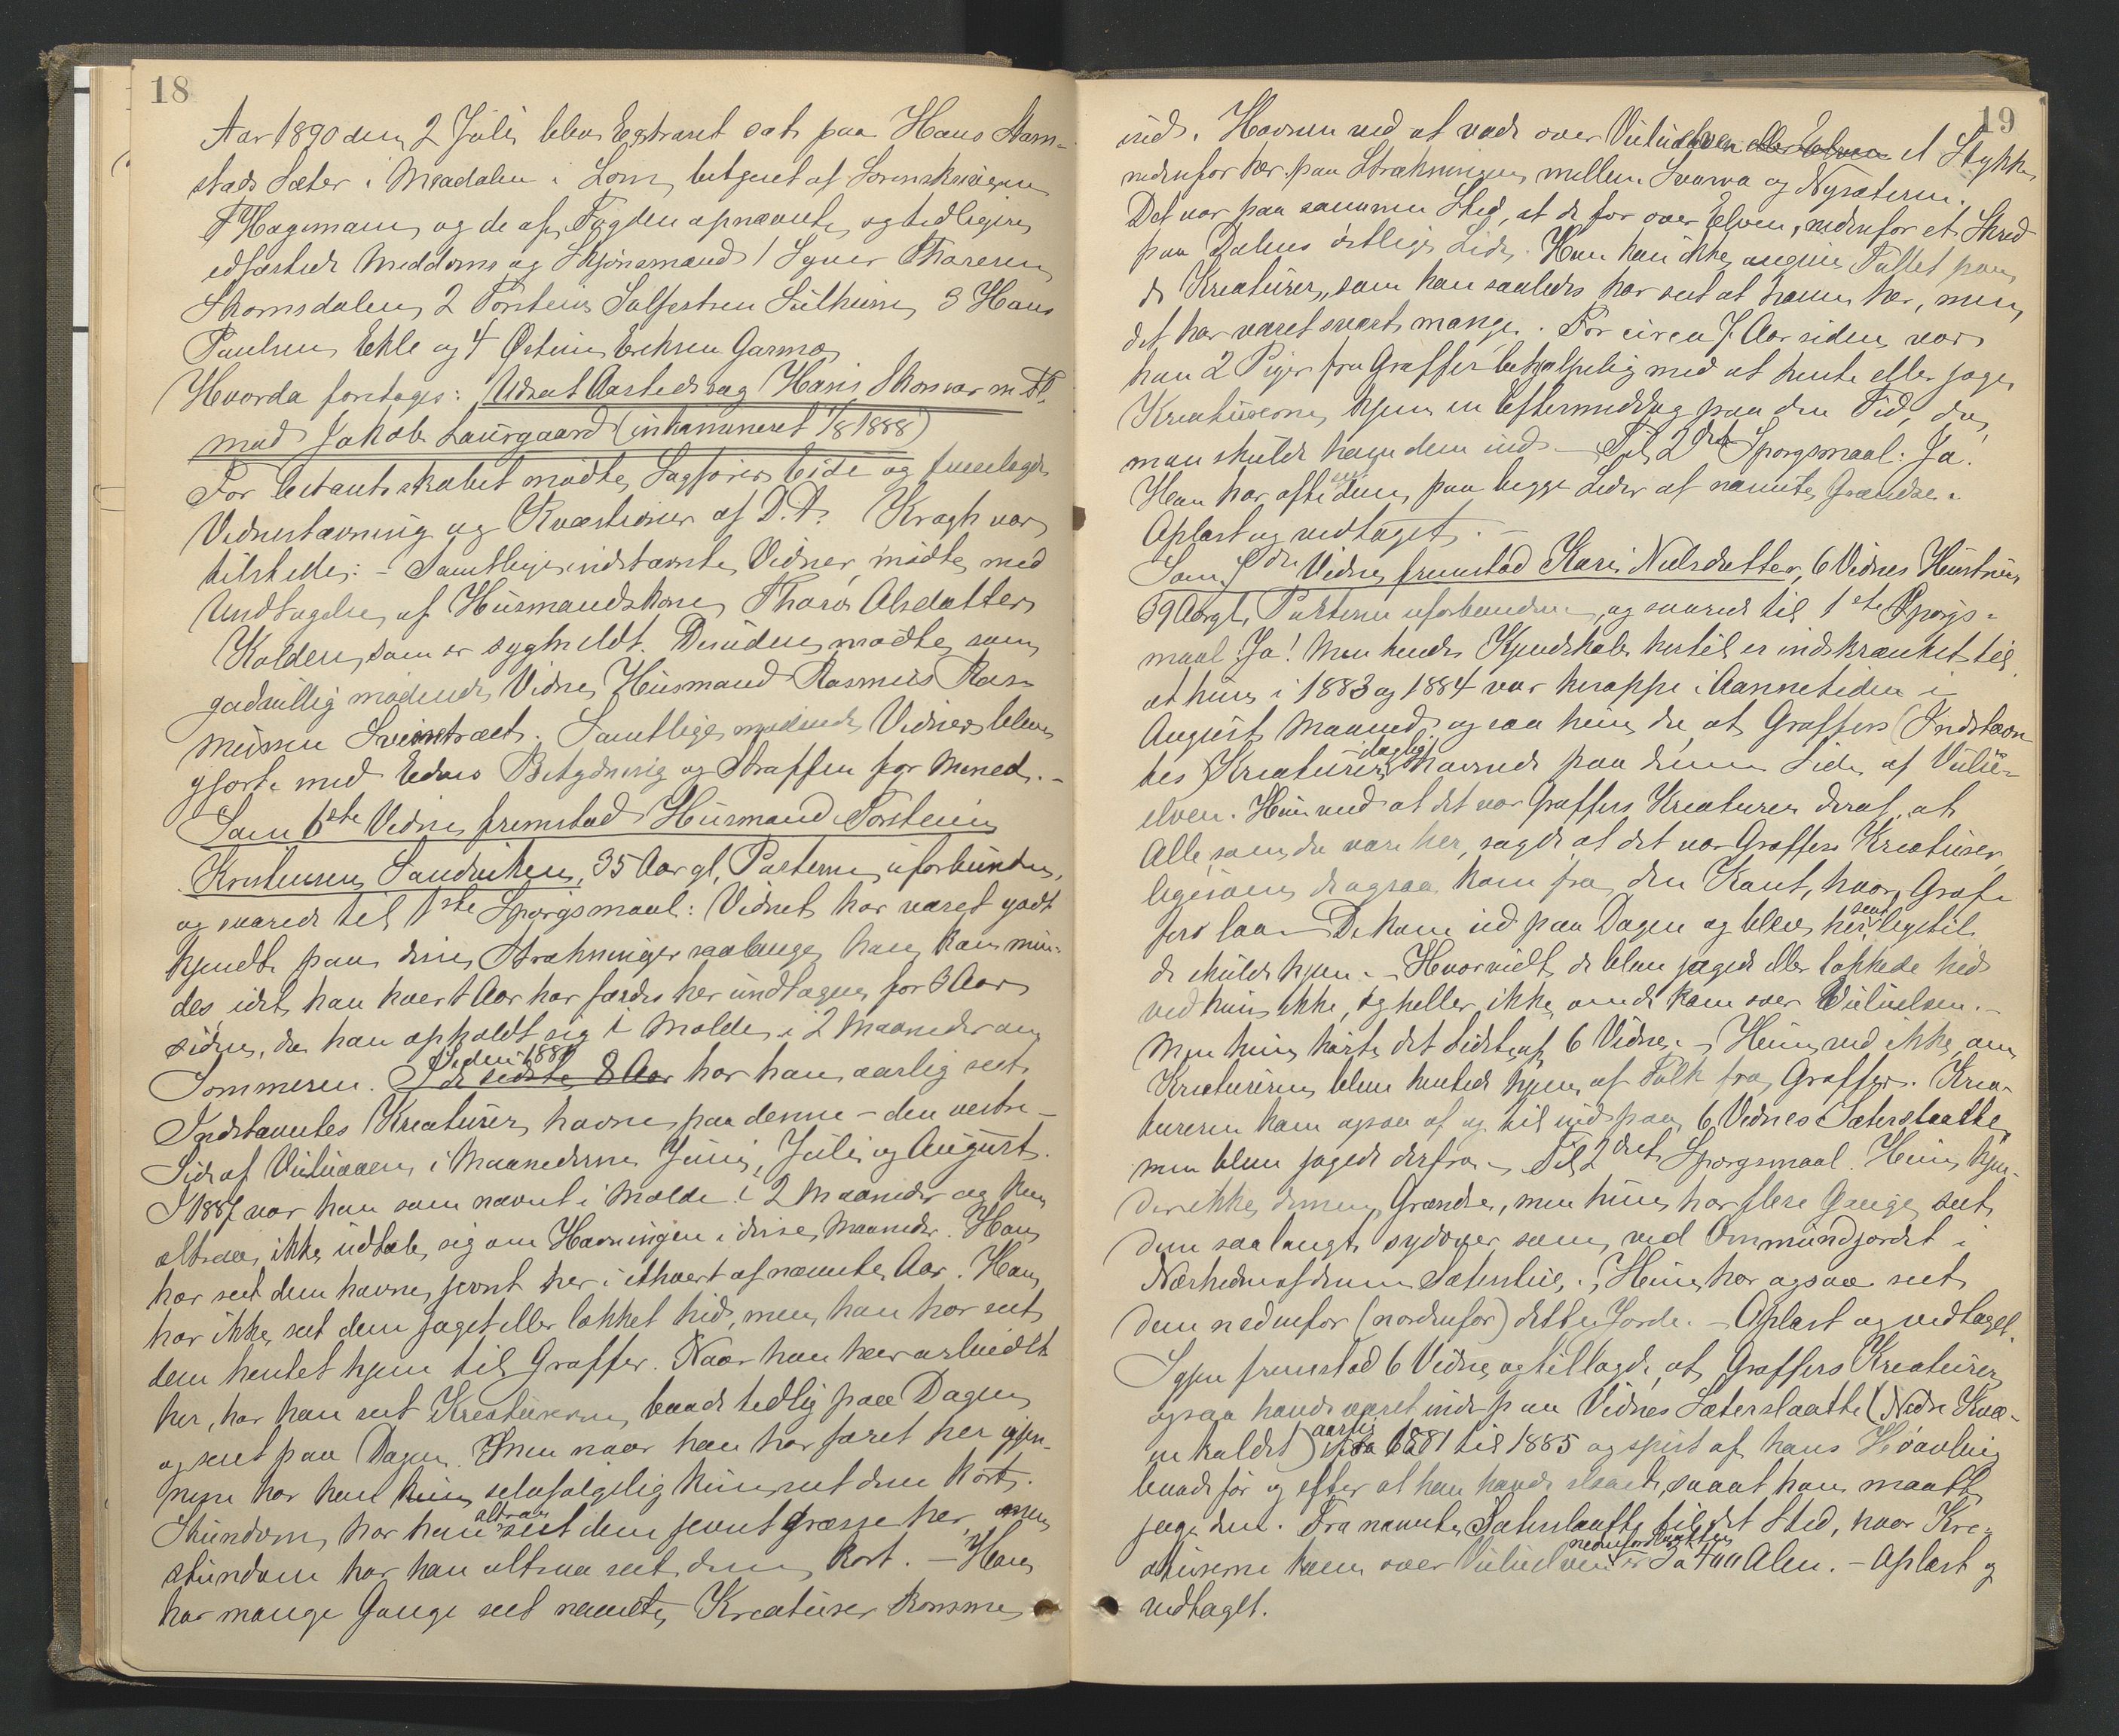 18
Aar 1890 den 2 Juli blev Extraret sat paa Hans Stam-
stads Sæter i Meadalen i Lom, betjent af Sorenskriveren
T Hagemann og de af Fogden opnævnte og tidligere
edfæstede Meddoms og Skjønsmænd 1 Syver Thoresen
Skomsdalen, 2 Torstein Sulfestsen Sulheim, 3 Hans
Paulsen Ekle og 4 Østein Eriksen Garmo
Hvorda foretoges: Udsat Aastedssag Hans Skonvar m Fl.
mod Jakob Laurgaard (inkamineret 1/8 1888)
For Citantskabet mødte Sagfører Eide og fremlagde
Vidnestævning og Kvæstioner af D.D. Kragh var
tilstede: - Samtlige indstævnte Vidner mødte med
Undtagelse af Husmandskone Thora Olsdatter
Kolden, som er sygmeldt. Desuden mødte som
godvillig mødende Vidne Husmand Rasmus Ras-
mussen Sveinstræet. Samtlige mødende Vidner blev
gjort med Edens Betydning og Straffen for Mened. -
Som 6te Vidne fremstod Husmand Torstein
Kristensen Sandviken, 35 Aar gl, Parterne uforbunden,
og svarede til 1ste Spørgsmaal: Vidnet har været godt
kjendt paa disse Strækninger saalænge han kan min-
des idet han hvert Aar har færdes her undtagen for 3 Aar
siden, da han opholdt sig i Molde i 2 Maaneder om
Sommeren. Siden 1881 I de sidste 8 Aar har han aarlig seet
Indstævntes Kreaturer havne paa denne - den vestre -
Side af Vuluaaen i Maanederne Juni, Juli og August.
I 1887 var han som nævnt i Molde i 2 Maaneder og kan
altsaa ikke udtale sig om Havningen i disse Maaneder. Han
har seet dem havne jevnt her i ethvert af nævnte Aar. Han
har ikke seet dem jaget eller lokket hid, men han har seet
dem hentet hjem til Graffer. Naar han har arbeidet
her, har han seet Kreaturerne baade tidlig paa Dagen
og sent paa Dagen. Men naar han har faret her igjen-
nem har han selvfølgelig kun seet dem kort.
Stundom har han altsaa seet dem jevnt græsse her, men
stundom har han altsaa seet dem kort. - Han
har mange Gange seet nævnte Kreaturer komme
19
ind i Havnen ved at vade over Vuluelven eller Elven et Stykke
nedenfor her paa Strækningen mellem Svarva og Nysæteren.
Det var paa samme Sted, at de for over Elven, nedenfor et Skred
paa Dalens østlige Side. Han kan ikke angive Tallet paa
de Kreaturer, som han saaledes har seet at havne her, men
det har været svært mange. For circa 7 Aar siden var
han 2 Piger fra Graffer behjælpelig med at hente eller jage
Kreaturerne hjem en Eftermiddag paa den Tid, da
man skulde have dem ind. - Til 2det Spørgsmaal: Ja.
Han har ofte seet dem paa begge Sider af nævnte Grændse.
Oplæst og vedtaget. -
Som 7de Vidne fremstod Kari Nielsdatter, 6 Vidnes Hustru,
39 Aar gl, Parterne uforbunden, og svarede til 1ste Spørgs-
maal Ja! Men hendes Kjendskab hertil er indskrænket til
at hun i 1883 og 1884 var heroppe i Aannetiden i
August Maaned og saa hun da, at Graffers (Indstævn-
tes) Kreaturer daglig havnede paa denne Side af Vulu-
elven. Hun ved at det var Graffers Kreaturer deraf, at
Alle, som da vare her, sagde at det var Graffers Kreaturer,
ligesom de ogsaa kom fra den Kant, hvor Graf-
fers laa. - De kom ud paa Dagen og blev her seent, ligetil
de skulde hjem. - Hvorvidt de blev jagede eller lokkede hid
ved hun ikke, og heller ikke, om de kom over Vuluelven. -
Men hun hørte det sidste af 6 Vidne. - Hun ved ikke, om
Kreaturerne blev hentede hjem af Folk fra Graffer. Krea-
turerne kom ogsaa af og til ind paa 6 Vidnes Sæterslaatte,
men blev jagede derfra. - Til 2det Spørgsmaal. Hun kjen-
der ikke denne Grændse, men hun har flere Gange seet
dem saalangt sydover som ved Ommundjordet i
Nærheden af denne Sæterstue. Hun har ogsaa seet
dem nedenfor (nordenfor) dette Jorde. - Oplæst og vedtaget.
Igjen fremstod 6 Vidne og tillagde, at Graffers Kreaturer
ogsaa havde været inde paa Vidnes Sæterslaatte (Nedre Kvæ-
en kaldet) aarlig fra 1881 til 1885 og spist af hans Høavling
baade før og efter at han havde slaaet, saaat han maatte
jage dem. Fra nævnte Sæterslaatte til det Sted, hvor Kre-
aturerne kom over Vuluelven nedenfor er 3 a 400 Alen. - Oplæst og
vedtaget.